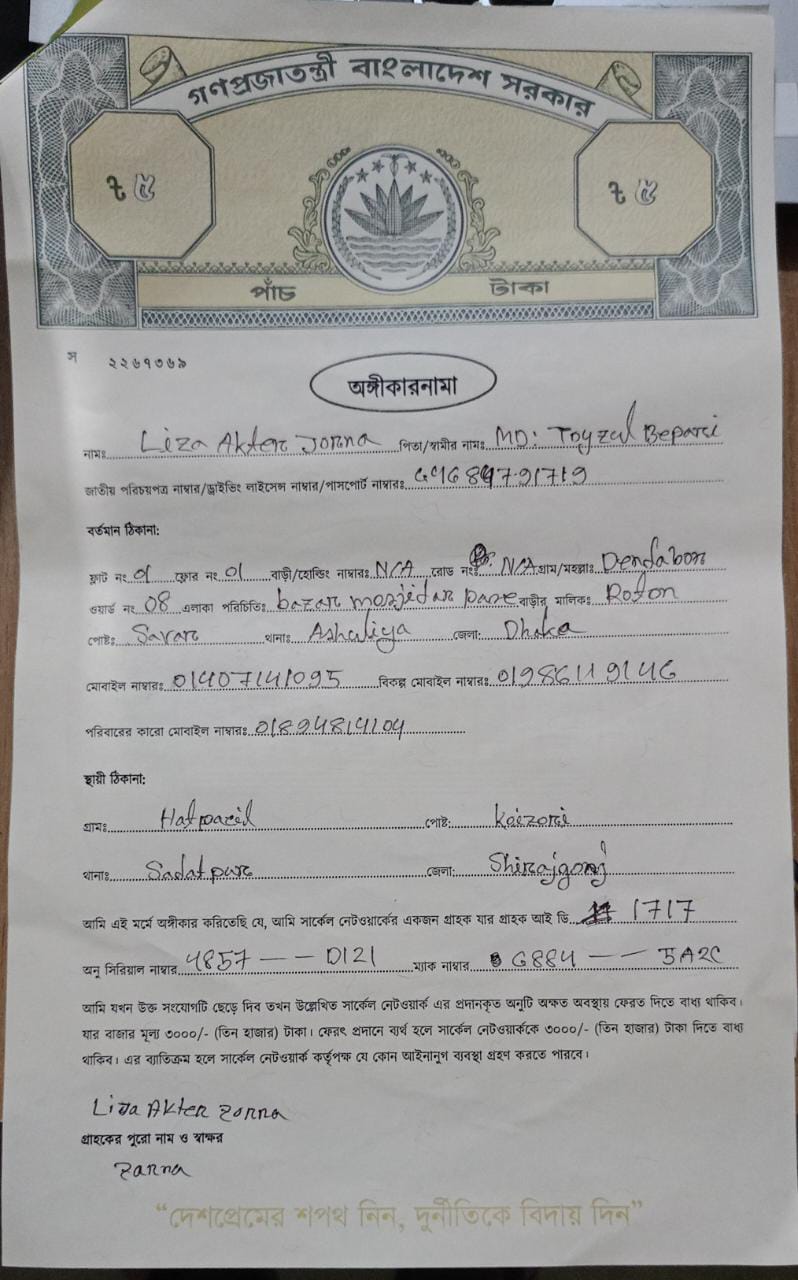 গণপ্রজাতন্ত্রী বাংলাদেশ সরকার
৳ ৫ ৳ ৫
পাঁচ টাকা
স ২২৬৭৩৬৯
অঙ্গীকারনামা
নামঃ Liza Akter Jorna পিতা/স্বামীর নামঃ MD: Toyzul Bepari
জাতীয় পরিচয়পত্র নাম্বার/ড্রাইভিং লাইসেন্স নাম্বার/পাসপোর্ট নাম্বারঃ
বর্তমান ঠিকানা:
ফ্লাট নং 01 ফ্লোর নং 01 বাড়ী/হোল্ডিং নাম্বারঃ N/A রোড নংঃ N/A গ্রাম/মহল্লাঃ Dendabon
ওয়ার্ড নং 08 এলাকা পরিচিতিঃ bazar mosjider pare বাড়ীর মালিকঃ Roton
পোষ্টঃ Savar থানাঃ Ashuliya জেলা: Dhaka
মোবাইল নাম্বারঃ 01407141095 বিকল্প মোবাইল নাম্বারঃ 01986119146
পরিবারের কারো মোবাইল নাম্বারঃ 01894814104
স্থায়ী ঠিকানা:
গ্রামঃ Hatpacil পোষ্ট: Koizori
থানাঃ Sadatpur জেলা: Shirajgonj
আমি এই মর্মে অঙ্গীকার করিতেছি যে, আমি সার্কেল নেটওয়ার্কের একজন গ্রাহক যার গ্রাহক আই ডি 1717
অনু সিরিয়াল নাম্বার 4857 -- D121 ম্যাক নাম্বার G884 -- 5A2C
আমি যখন উক্ত সংযোগটি ছেড়ে দিব তখন উল্লেখিত সার্কেল নেটওয়ার্ক এর প্রদানকৃত অনুটি অক্ষত অবস্থায় ফেরত দিতে বাধ্য থাকিব।
যার বাজার মূল্য ৩০০০/- (তিন হাজার) টাকা। ফেরৎ প্রদানে ব্যর্থ হলে সার্কেল নেটওয়ার্ককে ৩০০০/- (তিন হাজার) টাকা দিতে বাধ্য
থাকিব। এর ব্যতিক্রম হলে সার্কেল নেটওয়ার্ক কর্তৃপক্ষ যে কোন আইনানুগ ব্যবস্থা গ্রহণ করতে পারবে।
Liza Akter Zorna
গ্রাহকের পুরো নাম ও স্বাক্ষর
Zarna
“দেশপ্রেমের শপথ নিন, দুর্নীতিকে বিদায় দিন”